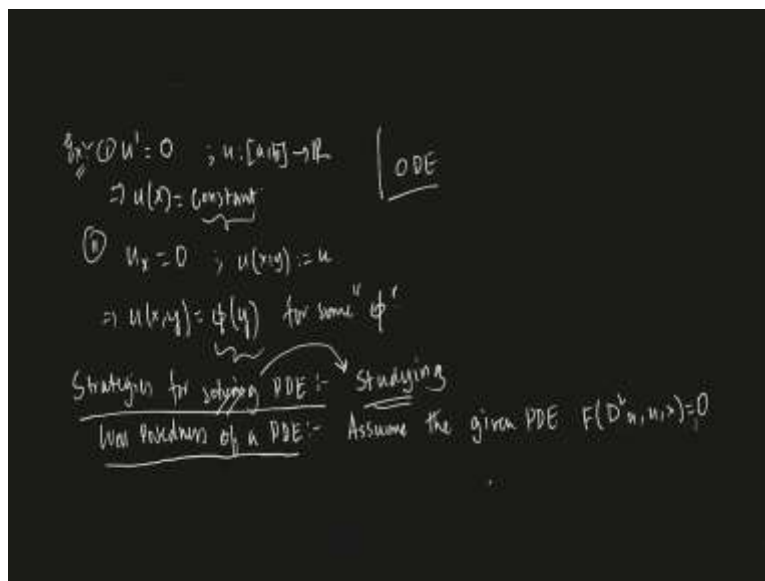 Ex:- ① u' = 0 ; u: [a,b] → ℝ | ODE
⇒ u(x) = Constant
② u_x = 0 ; u(x,y) := u
⇒ u(x,y) = φ(y) for some "φ"
Strategies for solving PDE:- Studying
Well Posedness of a PDE:- Assume the given PDE F(D²u, u, x) = 0